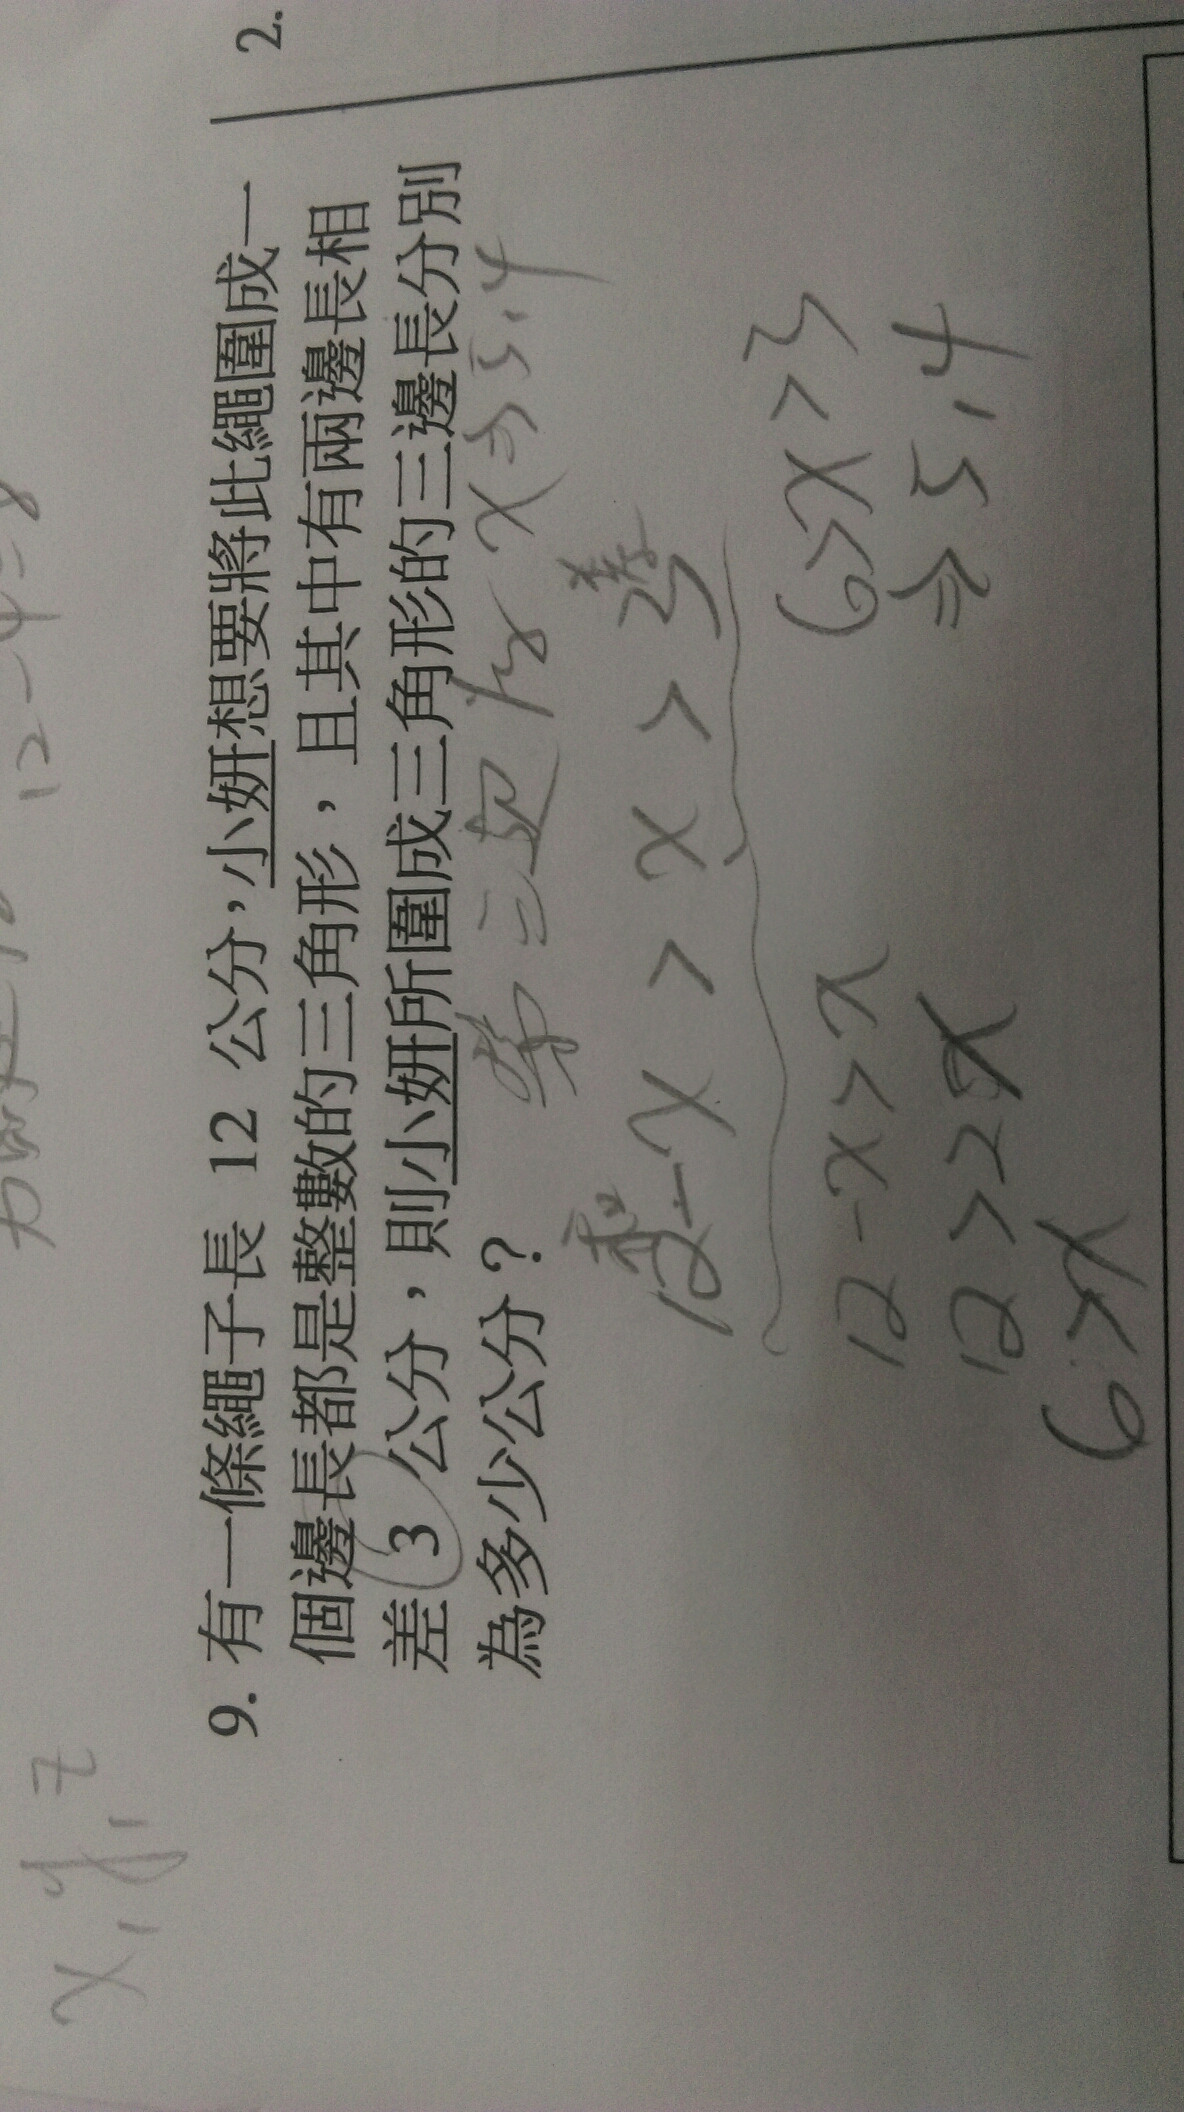 12-4=8
x, y, z
9. 有一條繩子長 12 公分,小妍想要將此繩圍成一
個邊長都是整數的三角形,且其中有兩邊長相
差 3 公分,則小妍所圍成三角形的三邊長分別
為多少公分?
2.
第三边為 x⇒5,4
和 差
12-x > x > 3
12-x>x
12>2x
6>x
6>x>3
⇒5,4